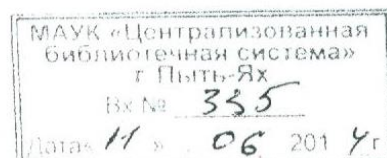 МАУК «Централизованная
библиотечная система»
г. Пыть-Ях
Вх № 335
Дата « 11 » 06 2014 г